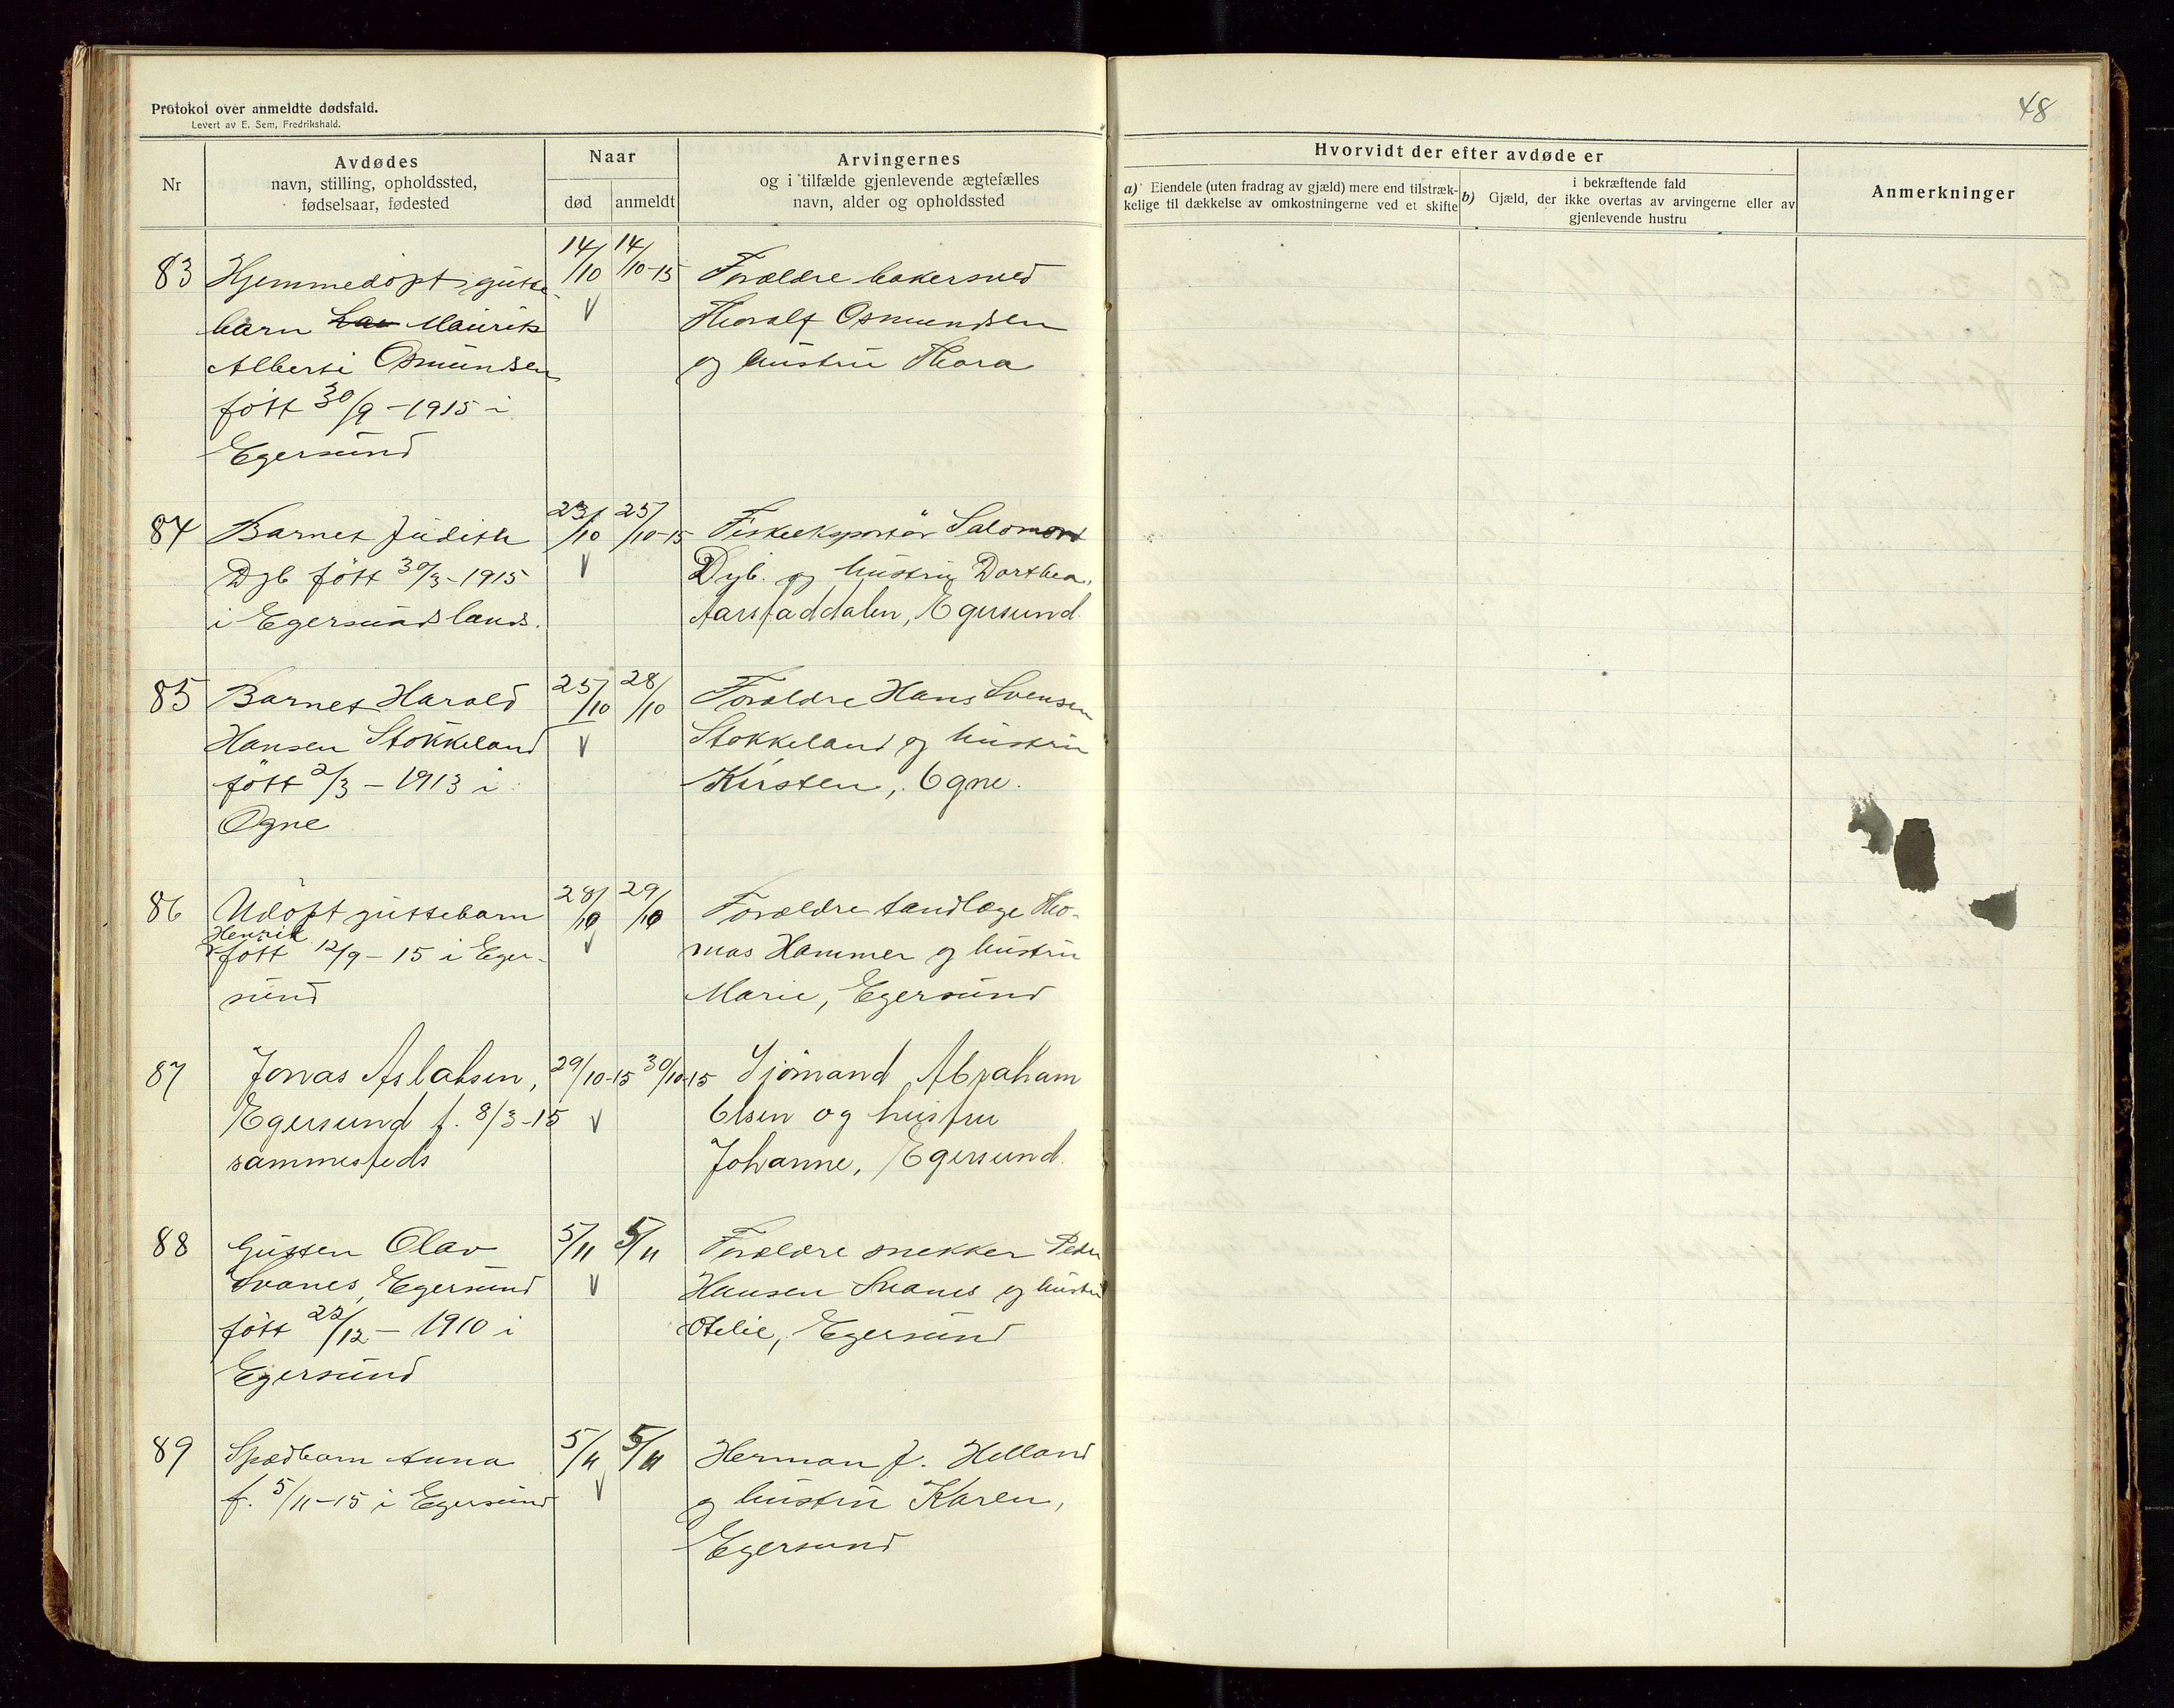 Protokol over anmeldte dødsfald.
Levert av E. Sem, Fredrikshald.
48
Nr
Avdødes
navn, stilling, opholdssted,
fødselsaar, fødested
Naar
død
anmeldt
Arvingernes
og i tilfælde gjenlevende ægtefælles
navn, alder og opholdssted
Hvorvidt der efter avdøde er
a) Eiendele (uten fradrag av gjæld) mere end tilstræk-
kelige til dækkelse av omkostningerne ved et skifte
i bekræftende fald
b) Gjæld, der ikke overtas av arvingerne eller av
gjenlevende hustru
Anmerkninger
83
Hjemmedöpt gutte-
barn Maurits
Alberti Osmundsen
fött 30/9 - 1915 i
Egersund
14/10
14/10-15
Forældre bakersved
Thoralf Osmundsen
og hustru Thora
84
Barnet Judith
Dyb fött 30/3 - 1915
i Egersunds lands.
23/10
25/10-15
Fiskeeksportör Salomon
Dyb. og hustru Dorthea,
Aarstaddalen, Egersund
85
Barnet Harald
Hansen Stokkeland
fött 2/3 - 1913 i
Ogne
25/10
28/10
Forældre Hans Svensen
Stokkeland og hustru
Kirsten, Ogne.
86
Udöpt guttebarn
Henrik
fött 12/9 - 15 i Eger-
sund
28/10
29/10
Forældre tandlæge Tho-
mas Hammer og hustru
Marie, Egersund
87
Jonas Aslaksen,
Egersund f. 8/3-15
sammesteds
29/10-15
30/10-15
Sjömand Abraham
Olsen og hustru
Johanne, Egersund.
88
Gutten Olav
Svanes, Egersund
fött 22/12 - 1910 i
Egersund
5/11
5/11
Forældre snekker Peder
Hansen Svanes og hustru
Otelie, Egersund
89
Spædbarn Anna
f. 5/11-15 i Egersund
5/11
5/11
Herman J. Helland
og hustru Karen,
Egersund